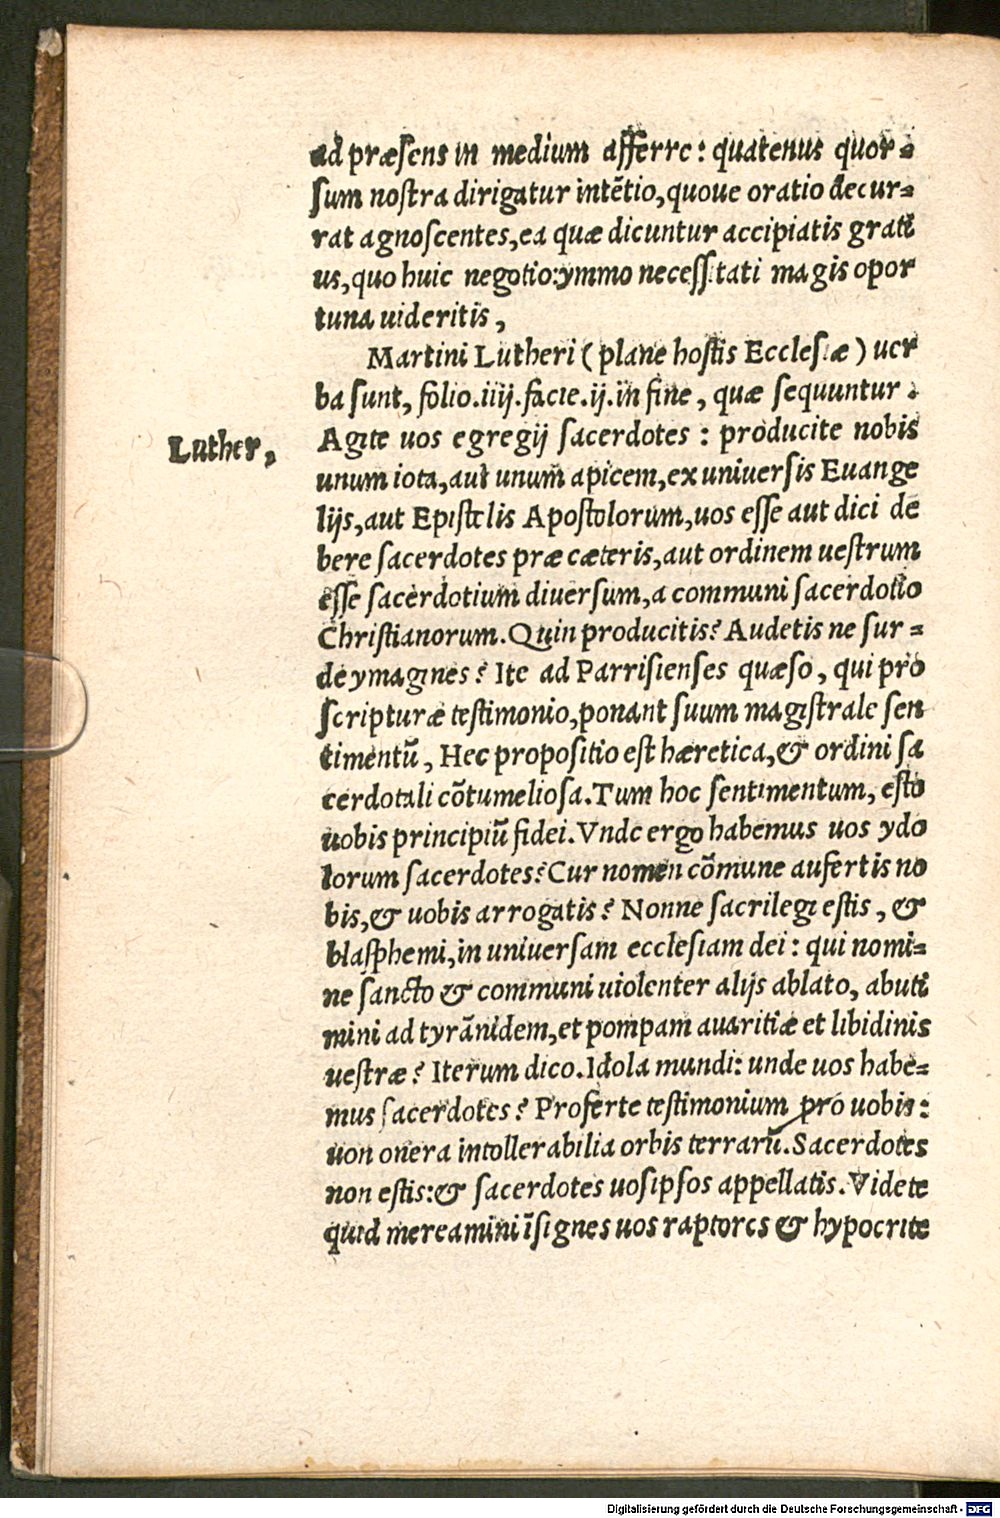 ad præsens in medium afferre: quatenus quor-
sum nostra dirigatur intētio, quoue oratio decur-
rat agnoscentes, ea quæ dicuntur accipiatis grati
us, quo huic negotio: ymmo necessitati magis opor
tuna uideritis,
Martini Lutheri (plane hostis Ecclesiæ) uer
ba sunt, folio.iiij.facie.ij.in fine, quæ sequuntur.
Luther,
Agite uos egregij sacerdotes: producite nobis
unum iota, aut unum apicem, ex uniuersis Euange
lijs, aut Epistolis Apostolorum, uos esse aut dici de
bere sacerdotes præ cæteris, aut ordinem uestrum
esse sacerdotium diuersum, a communi sacerdotio
Christianorum. Quin producitis? Audetis ne sur-
de ymagines? Ite ad Parrisienses quæso, qui pro
scripturæ testimonio, ponant suum magistrale sen
timentū, Hec propositio est hæretica, & ordini sa
cerdotali cōtumeliosa. Tum hoc sentimentum, esto
uobis principiū fidei. Vnde ergo habemus uos ydo
lorum sacerdotes? Cur nomen cōmune aufertis no
bis, & uobis arrogatis? Nonne sacrilegi estis, &
blasphemi, in uniuersam ecclesiam dei: qui nomi-
ne sancto & communi uiolenter alijs ablato, abuti
mini ad tyrānidem, et pompam auaritiæ et libidinis
uestræ? Iterum dico. Idola mundi: unde uos habe-
mus sacerdotes? Proferte testimonium pro uobis:
uon onera intollerabilia orbis terrarū. Sacerdotes
non estis: & sacerdotes uosipsos appellatis. Videte
quid mereamini īsignes uos raptores & hypocrite
Digitalisierung gefördert durch die Deutsche Forschungsgemeinschaft - DFG